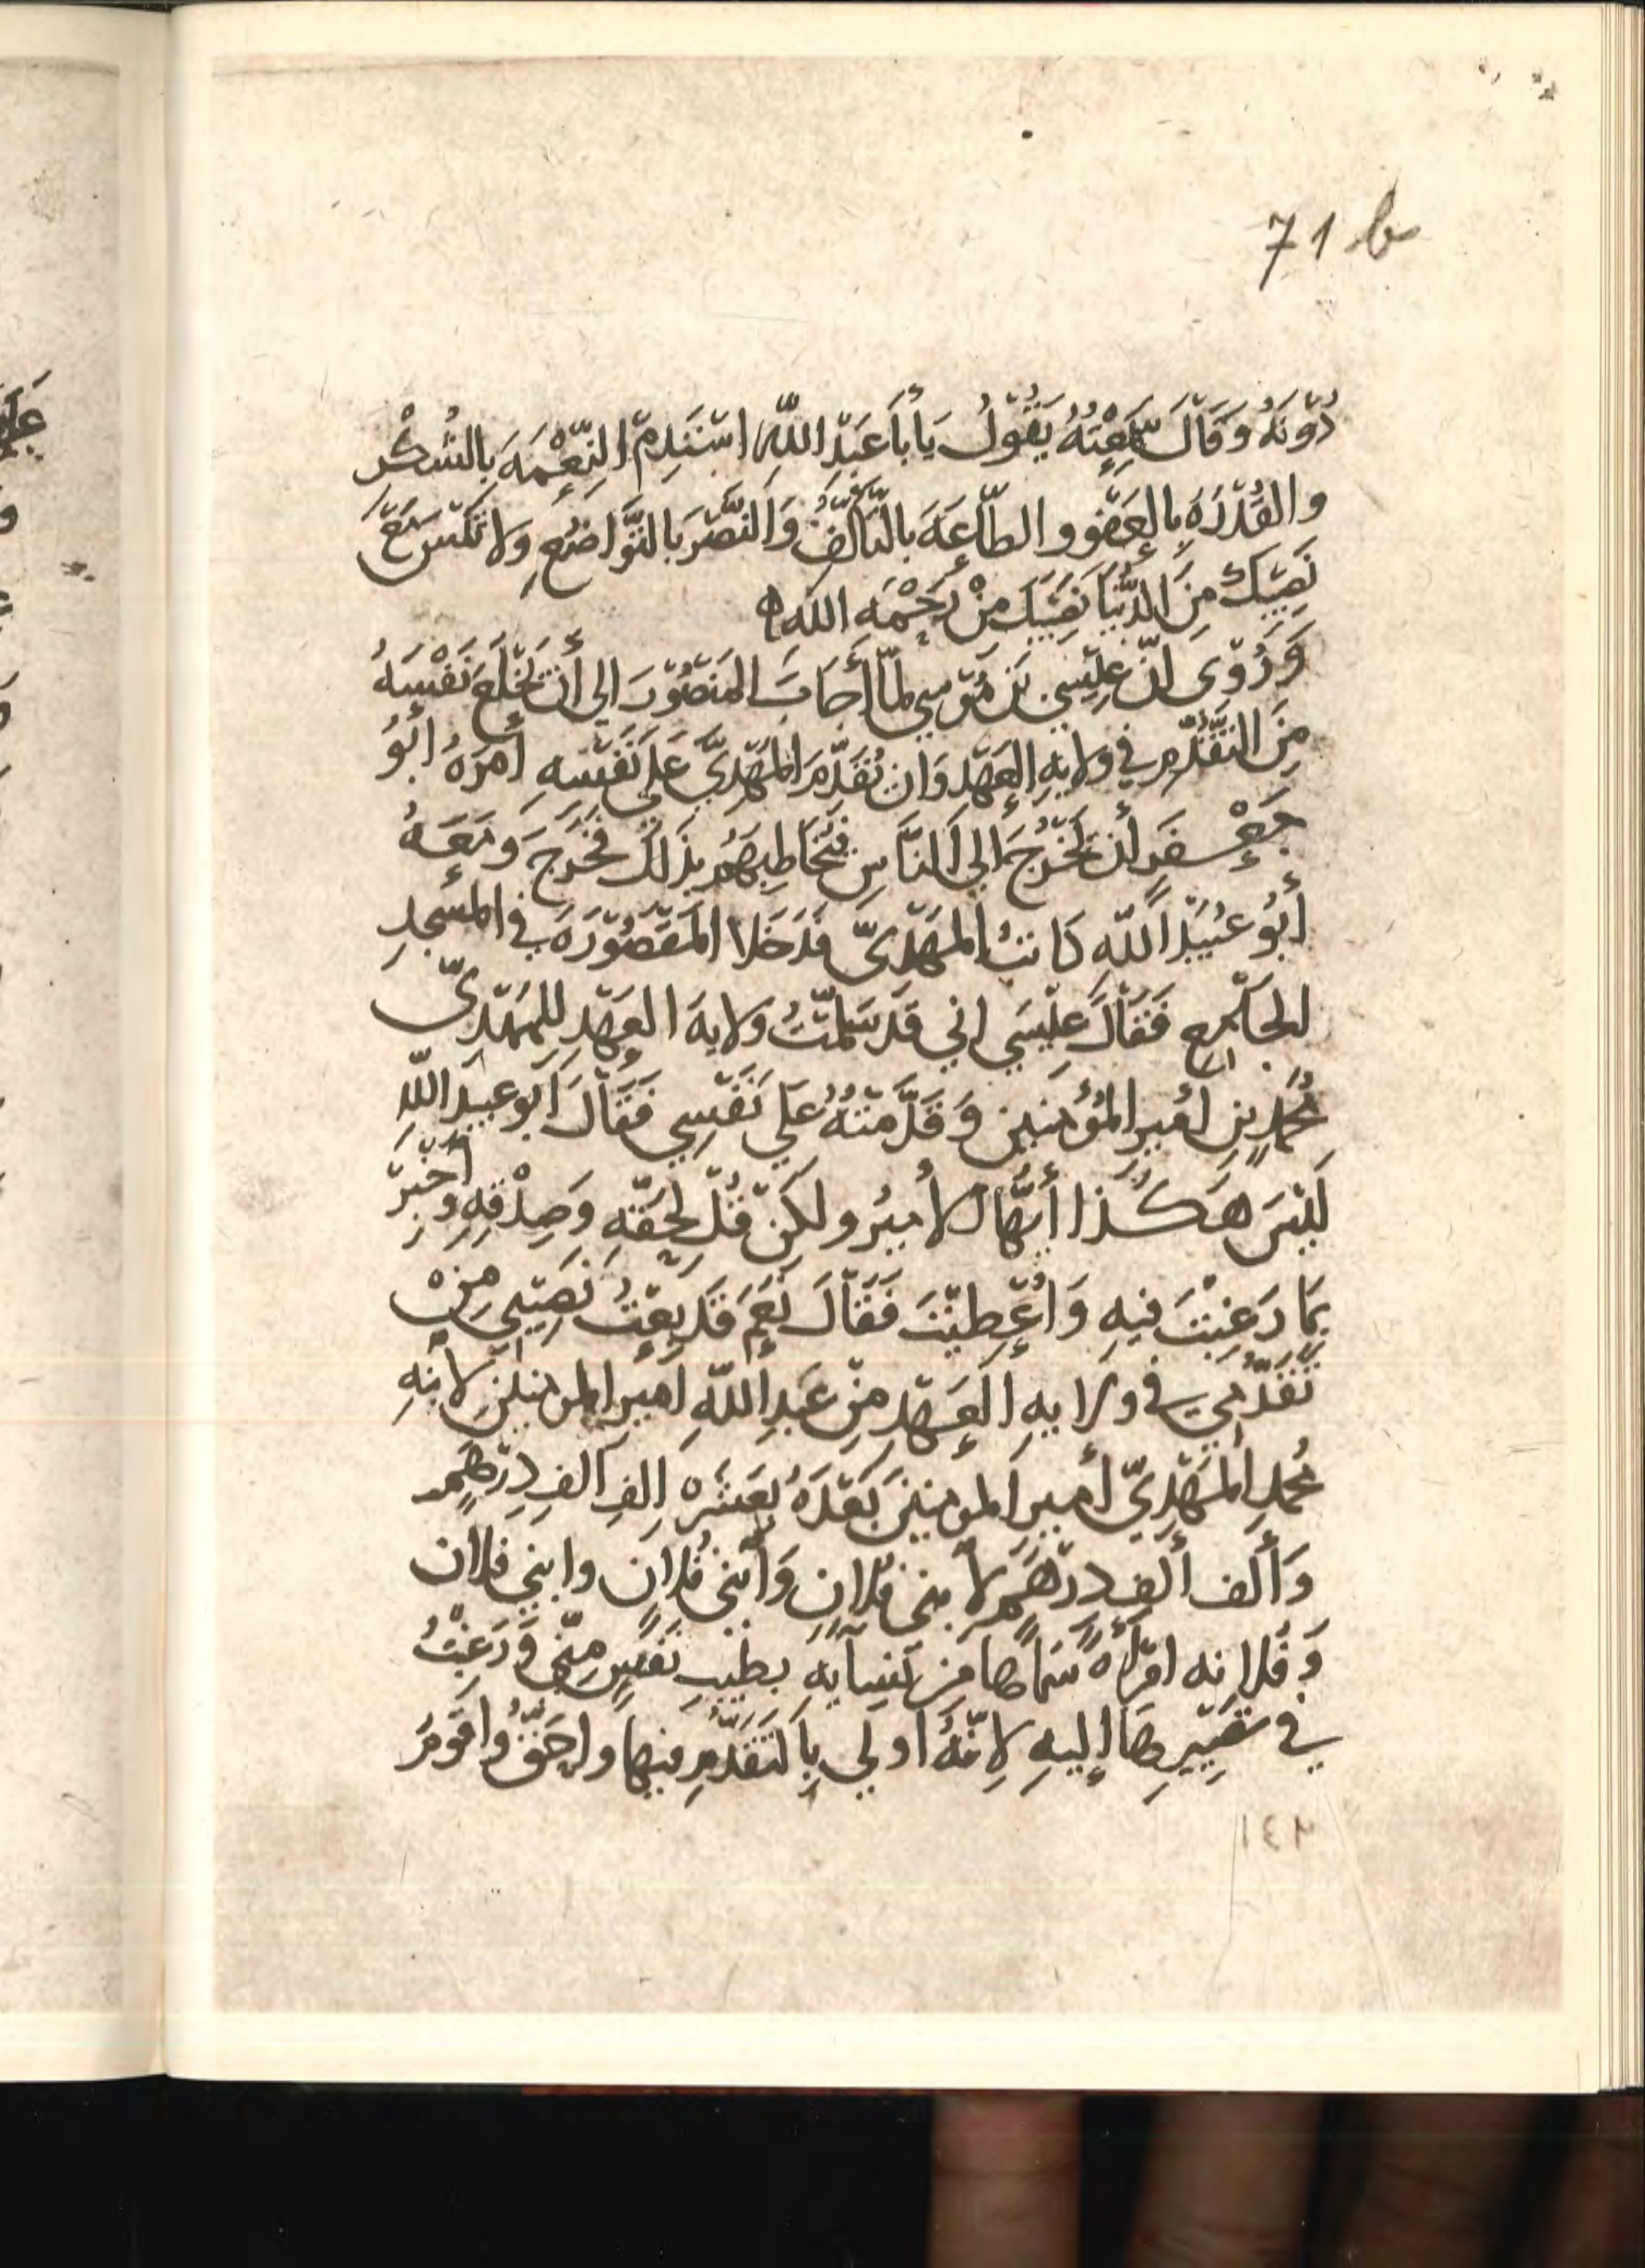 71 b
دُوْنَهُ وَقَالَ سَمِعْتُهُ يَقُوْلُ يَا أَبَا عَبْدِ اللّٰهِ اسْتَدِمِ النِّعْمَةَ بِالشُكْرِ
والقُدْرَةَ بِالعَفْوِ والطَّاعَةَ بالتَّأَلُّفِ وَالنَّصْرَ بالتَّوَاضُعِ وَلا تَنْسَ مَعَ
نَصِيْبِكَ مِنَ الدُّنْيَا نَصِيْبَكَ مِنْ رَحْمَةِ الله
وَرُوِيَ انَّ عِيْسَى بْنَ مُوْسي لمَّا أَجَابَ المَنْصُوْرَ الي أَنْ يَخْلَعَ نَفْسَهُ
مِنَ التَّقَدُّمِ في ولايةِ العَهْدِ وَان يُقَدِّمَ المَهْدِيَّ عَلَى نَفْسِهِ أَمَرَهُ أَبُوْ
جَعْفَرٍ أَنْ يَخْرُجَ الي النَّاسِ فَيُخَاطِبَهُم بِذَلِكَ فَخَرَجَ وَمَعَهُ
أَبُوْ عُبَيْدِ اللّٰهِ كَاتبُ المَهْدِيِّ فَدَخَلا المَقْصُوْرَةَ في المَسْجِدِ
الجَامِع فَقَالَ عِيْسَي اني قَدْ سَلَّمْتُ وَلايةَ العَهْدِ لِلمَهْدِيِّ
مُحَمَّدِ بنِ امِيرِ المُؤْمِنين وَقَدَّمْتُهُ عَلَي نَفْسِي فَقَالَ أَبو عبيدِ اللّٰهِ
لَيْسَ هَكَذا أَيُّهَا الأَميرُ ولكن قُلْ بِحَقِّهِ وَصِدْقِهِ وَأَخْبِرْ
بِمَا رَغِبْتَ فِيهِ وَاُعْطِيْتَ فَقَالَ نَعَمْ قَدْ بِعْتُ نَصِيْبِي مِنْ
تَقَدُّمِي في ولايةِ العَهْدِ مِنْ عَبْدِ اللّٰهِ اميرِ المومنينَ لابنِهِ
مُحَمدِ المَهْدِيِّ أَميرِ المومِنِيْنَ بَعْدَهُ بعَشرةِ الفِ الفِ دِرْهَمٍ
وَأَلف أَلفِ درْهَمٍ لابني فُلانٍ وَابْنِي فُلانٍ وابني فلان
وَفلانه امْرَأَةٌ سَمَّاهَا مِنْ نِسَايه بطِيْبِ نَفْسٍ مِنِّي وَرَغِبْتُ
فِي تَصْيِيْرِهَا إِليهِ لِانَّهُ اولي بِالتَقَدُّمِ فيها واحَقُّ واقومُ